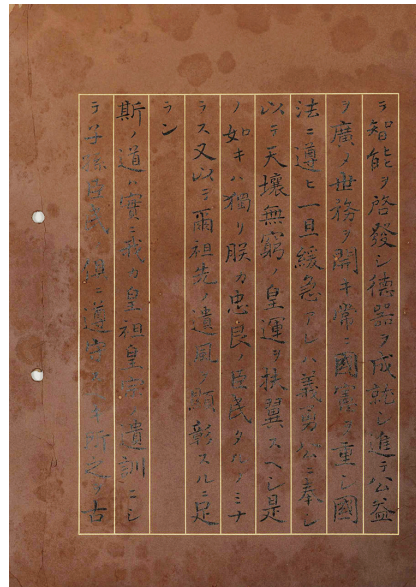 テ智能ヲ啓發シ德器ヲ成就シ進テ公益
ヲ廣メ世務ヲ開キ常ニ國憲ヲ重シ國
法ニ遵ヒ一旦緩急アレハ義勇公ニ奉シ
以テ天壤無窮ノ皇運ヲ扶翼スヘシ是
ノ如キハ獨リ朕カ忠良ノ臣民タルノミナ
ラス又以テ爾祖先ノ遺風ヲ顕彰スルニ足
ラン
斯ノ道ハ實ニ我カ皇祖皇宗ノ遺訓ニシ
テ子孫臣民ノ俱ニ遵守スヘキ所之ヲ古